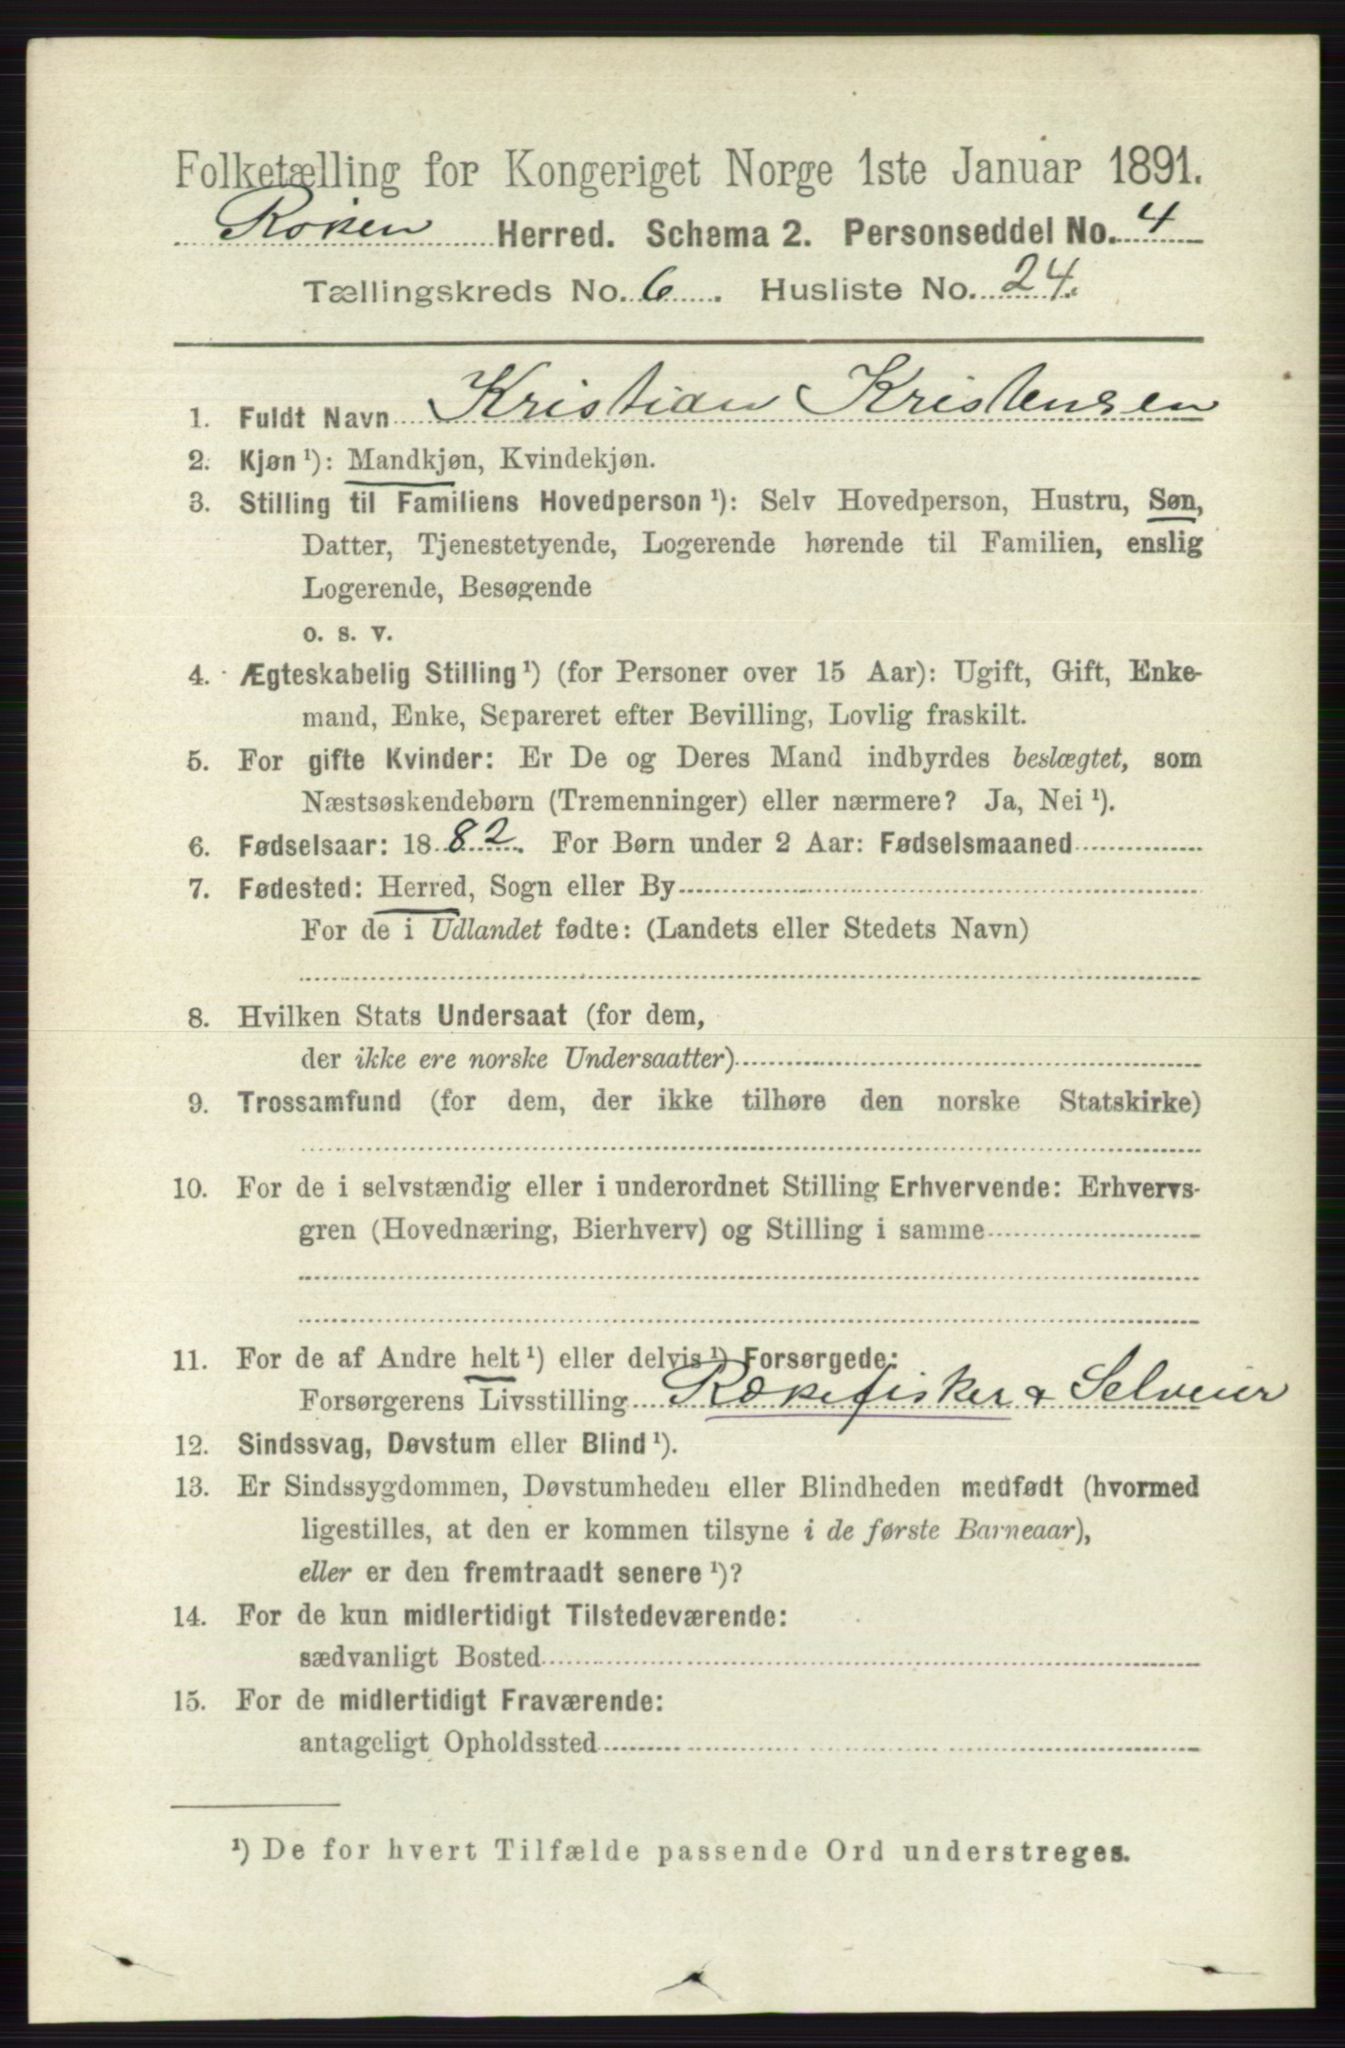 Folketælling for Kongeriget Norge 1ste Januar 1891.
Røken Herred. Schema 2. Personseddel No. 4
Tællingskreds No. 6. Husliste No. 24.
1. Fuldt Navn Kristian Kristensen
2. Kjøn ¹): Mandkjøn, Kvindekjøn.
3. Stilling til Familiens Hovedperson ¹): Selv Hovedperson, Hustru, Søn,
Datter, Tjenestetyende, Logerende hørende til Familien, enslig
Logerende, Besøgende
o. s. v.
4. Ægteskabelig Stilling ¹) (for Personer over 15 Aar): Ugift, Gift, Enke-
mand, Enke, Separeret efter Bevilling, Lovlig fraskilt.
5. For gifte Kvinder: Er De og Deres Mand indbyrdes beslægtet, som
Næstsøskendebørn (Tremenninger) eller nærmere? Ja, Nei ¹).
6. Fødselsaar: 1882. For Børn under 2 Aar: Fødselsmaaned
7. Fødested: Herred, Sogn eller By
For de i Udlandet fødte: (Landets eller Stedets Navn)
8. Hvilken Stats Undersaat (for dem,
der ikke ere norske Undersaatter)
9. Trossamfund (for dem, der ikke tilhøre den norske Statskirke)
10. For de i selvstændig eller i underordnet Stilling Erhvervende: Erhvervs-
gren (Hovednæring, Bierhverv) og Stilling i samme
11. For de af Andre helt ¹) eller delvis ¹) Forsørgede:
Forsørgerens Livsstilling Rækefisker & Selveier
12. Sindssvag, Døvstum eller Blind ¹).
13. Er Sindssygdommen, Døvstumheden eller Blindheden medfødt (hvormed
ligestilles, at den er kommen tilsyne i de første Barneaar),
eller er den fremtraadt senere ¹)?
14. For de kun midlertidigt Tilstedeværende:
sædvanligt Bosted
15. For de midlertidigt Fraværende:
antageligt Opholdssted
¹) De for hvert Tilfælde passende Ord understreges.